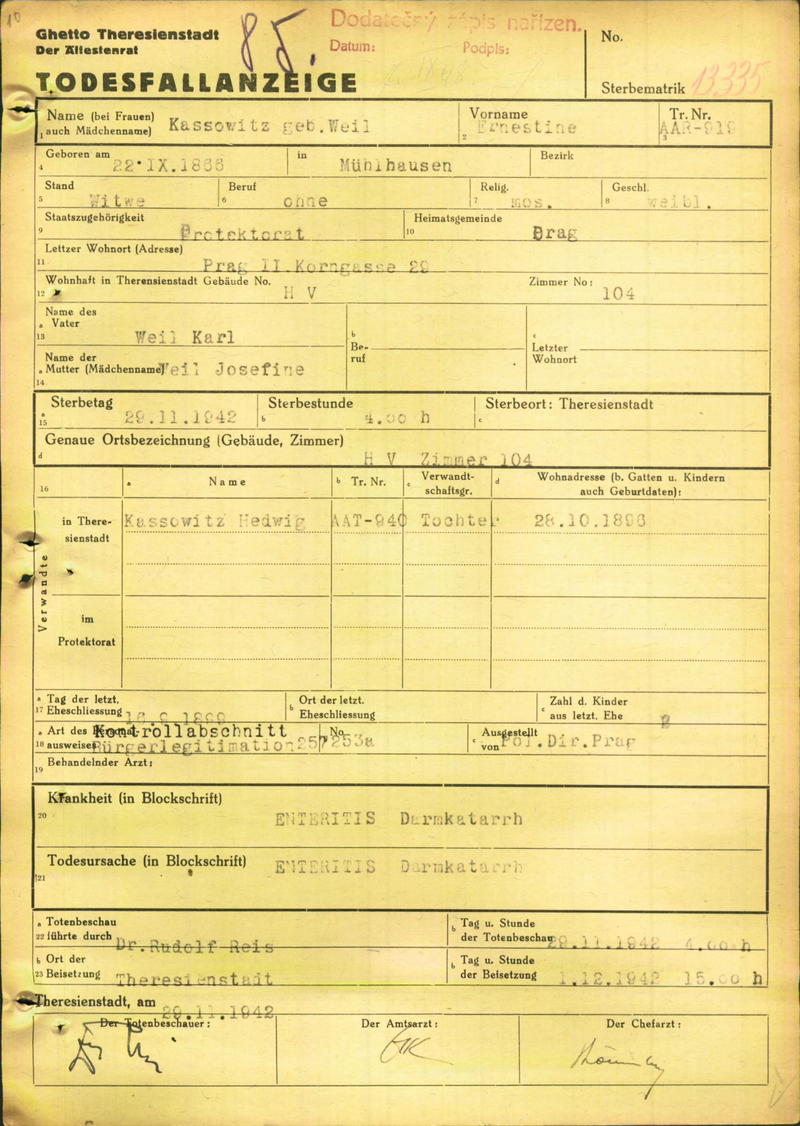 10
Ghetto Theresienstadt
Der Ältestenrat
85.
Dodatečný zápis nařízen.
Datum: Podpis:
No.
TODESFALLANZEIGE
Sterbematrik 13335
Name (bei Frauen) auch Mädchenname) Kassowitz geb.Weil
Vorname Ernestine
Tr. Nr. AAR-919
Geboren am 22.IX.1866 in Mühlhausen Bezirk
Stand Witwe Beruf ohne Relig. mos. Geschl. weibl.
Staatszugehörigkeit Protektorat Heimatsgemeinde Prag
Lettzer Wohnort (Adresse)
Prag II.Korngasse
Wohnhaft in Therensienstadt Gebäude No. H V Zimmer No: 104
Name des
Vater Weil Karl
Be-
ruf
Letzter
Wohnort
Name der
Mutter (Mädchenname) Weil Josefine
Sterbetag 29.11.1942 Sterbestunde 4.00 h Sterbeort: Theresienstadt
Genaue Ortsbezeichnung (Gebäude, Zimmer)
H V Zimmer 104
16 a Name b Tr. Nr. c Verwandt-
schaftsgr. d Wohnadresse (b. Gatten u. Kindern
auch Geburtdaten):
Verwandte
in There-
sienstadt Kassowitz Hedwig AAT-940 Tochter 28.10.1898
im
Protektorat
a Tag der letzt.
17 Eheschliessung b Ort der letzt.
Eheschliessung c Zahl d. Kinder
aus letzt. Ehe
a Art des Kontrollabschnitt No. c Ausgestellt
18 ausweises Bürgerlegitimation von Pol.Dir.Prag
19 Behandelnder Arzt:
Krankheit (in Blockschrift)
20 ENTERITIS Darmkatarrh
Todesursache (in Blockschrift) ENTERITIS Darmkatarrh
21
a Totenbeschau
22 führte durch Dr.Rudolf Reis b Tag u. Stunde
der Totenbeschau 29.11.1942 4.00 h
b Ort der
23 Beisetzung Theresienstadt b Tag u. Stunde
der Beisetzung 1.12.1942 15.00 h
Theresienstadt, am 29.11.1942
Der Totenbeschauer: Der Amtsarzt: Der Chefarzt: